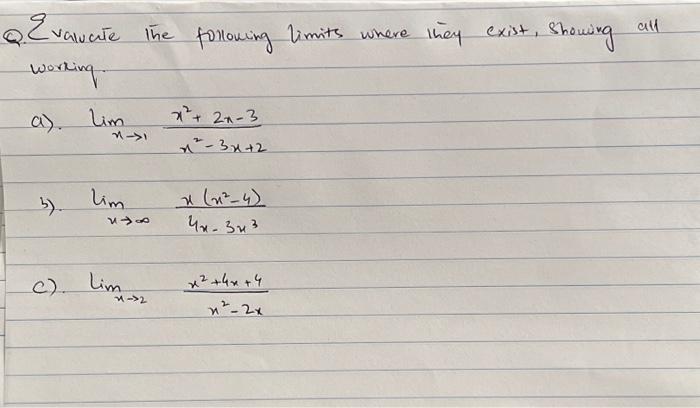 Q. Evaluate the following limits where they exist, showing all
working.
a). lim x→1 (x² + 2x - 3)/(x² - 3x + 2)
b). lim x→∞ x(x² - 4)/(4x - 3x³)
c). lim x→2 (x² + 4x + 4)/(x² - 2x)